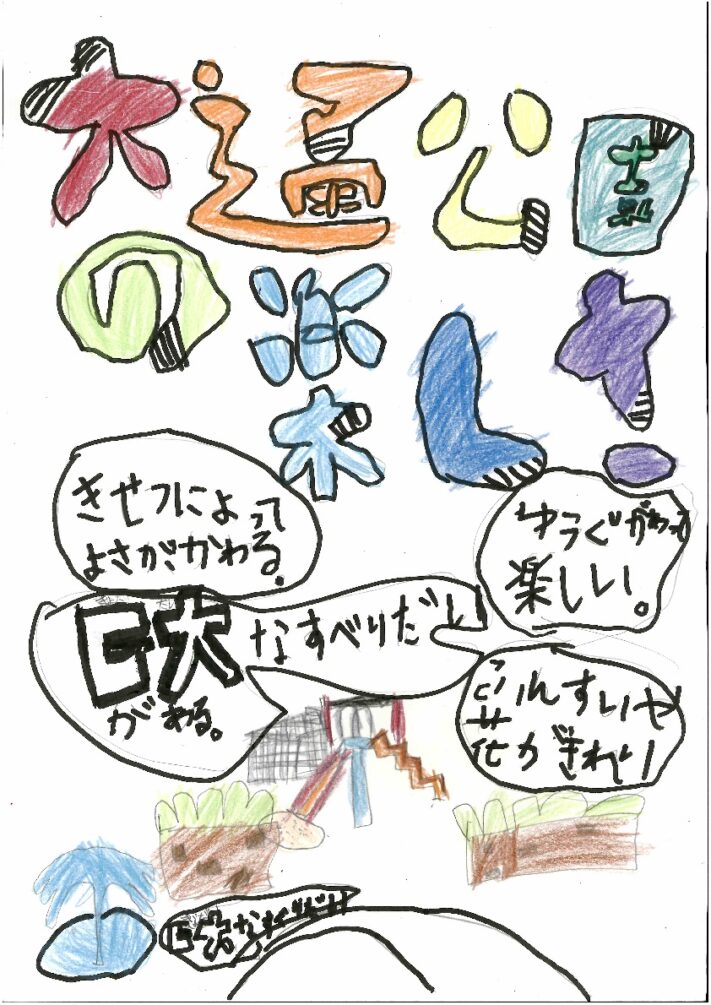 大通公園
の楽しさ
きせつによって
よさがかわる。
ゆうぐがあって
楽しい。
巨大なすべりだい
がある。
ふんすいや
花がきれい